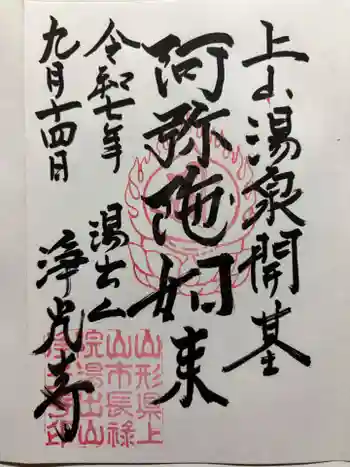 上山湯泉開基
阿弥陀如来
湯出山
浄光寺
令和七年
九月十四日
山形県上
山市長禄
院湯出山
浄光寺印